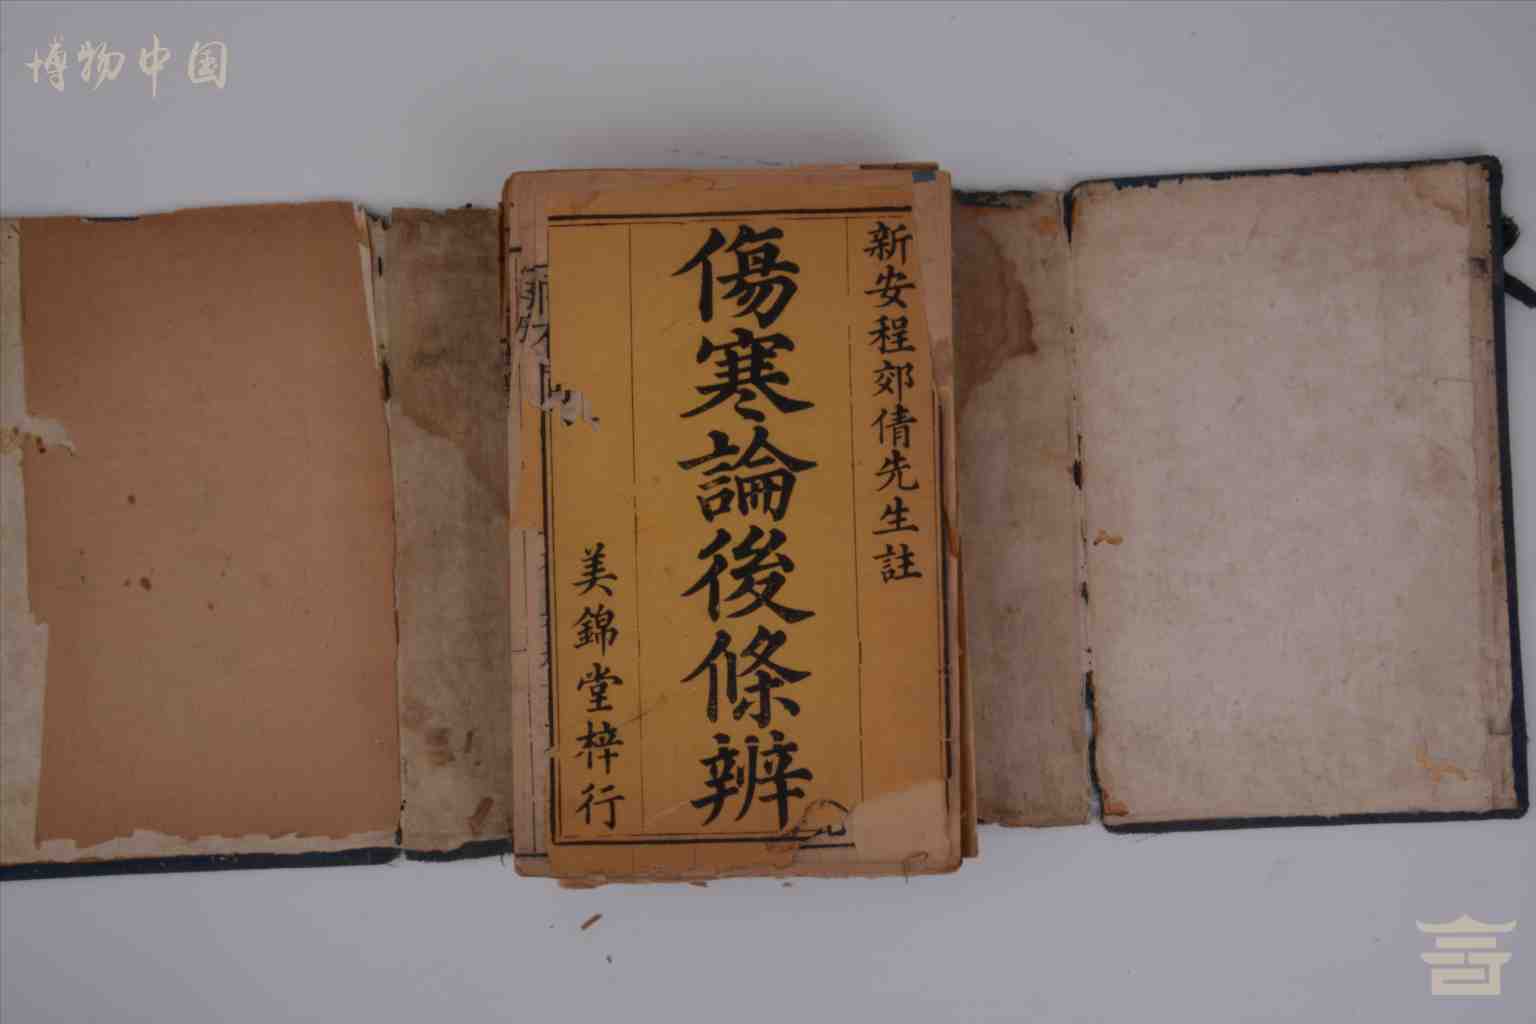 博物中国
新安程郊倩先生註
傷寒論後條辨
美錦堂梓行